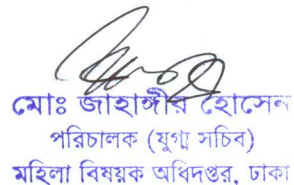 মোঃ জাহাঙ্গীর হোসেন
পরিচালক (যুগ্ম সচিব)
মহিলা বিষয়ক অধিদপ্তর, ঢাকা